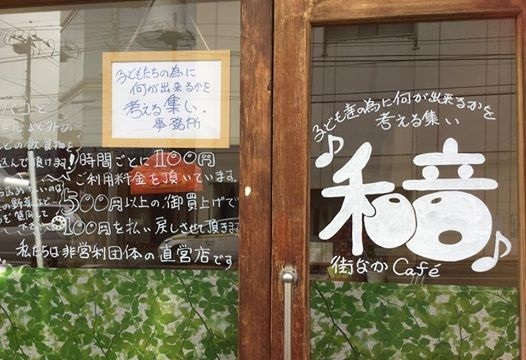 子どもたちの為に
何が出来るかを
考える集い.
事務所
1時間ごとに100円
ご利用料金を頂いています。
500円以上の御買上げで
100円を払い戻しさせて頂きます
私たちは非営利団体の直営店です
子ども達の為に何が出来るかを
考える集い
和音
街なかCafé